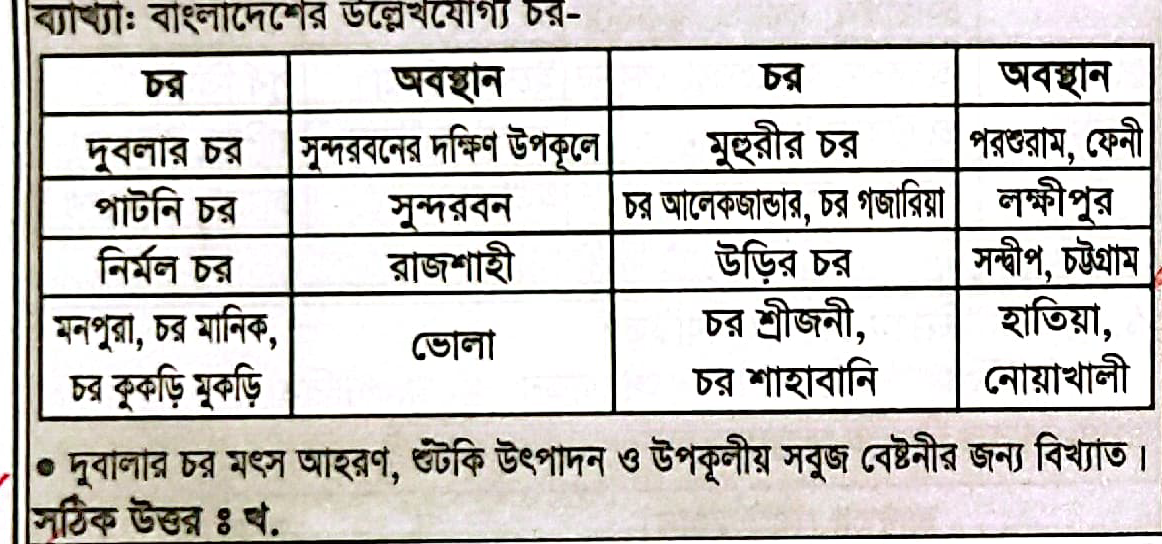 ব্যাখ্যাঃ বাংলাদেশের উল্লেখযোগ্য চর-
চর অবস্থান চর অবস্থান
দুবলার চর সুন্দরবনের দক্ষিণ উপকূলে মুহুরীর চর পরশুরাম, ফেনী
পাটনি চর সুন্দরবন চর আলেকজান্ডার, চর গজারিয়া লক্ষীপুর
নির্মল চর রাজশাহী উড়ির চর সন্দ্বীপ, চট্টগ্রাম
মনপুরা, চর মানিক, চর শ্রীজনী, হাতিয়া,
ভোলা
চর কুকড়ি মুকড়ি চর শাহাবানি নোয়াখালী
● দুবালার চর মৎস আহরণ, শুঁটকি উৎপাদন ও উপকূলীয় সবুজ বেষ্টনীর জন্য বিখ্যাত।
সঠিক উত্তর ঃ খ.